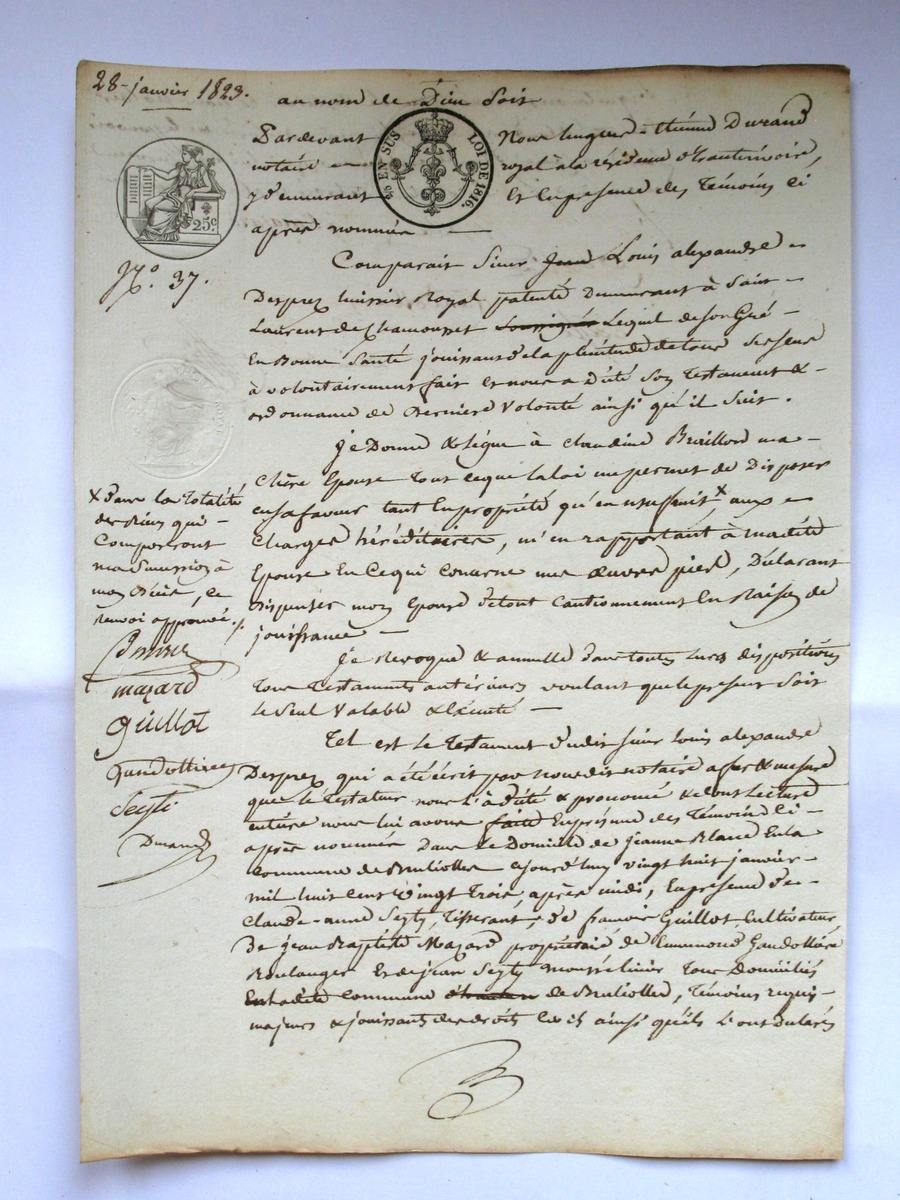 28 janvier 1823.
au nom de Dieu Soit
Pardevant Nous Etienne Durand
notaire royal à la résidence d'hauterivoire,
y demeurant Et En presence des Témoins ci
après nommés
¾ EN SUS LOI DE 1816.
25c
N.º 37.
Comparait Sieur Jean Louis alexandre
Desprez huissier Royal patenté Demeurant à Saint
Laurent de Chamousset Soussigné Lequel de Son Gré
En Bonne Santé jouissant de la plénitude de tous Ses sens
à volontairement fait et nous a Dicté Son Testament &
ordonnance de Derniere Volonté ainsi qu'il Suit.
je Donne & Lègue à Claudine Bruillon ma
Chère Epouse Tout ce que la loi me permet de Disposer
en Sa faveur tant En propriété qu'en usufruit x, aux
Charges héréditaires, m'en rapportant à madite
Epouse En Ce qui Concerne mes œuvres pies, Déclarant
Dispenser mon Epouse de tout Cautionnement En Raison de
jouissance
x dans la Totalité
des Biens qui
Composeront
ma Succession à
mon Décès, ce
renvoi approuvé.
Desprez
mazard
Guillot
Gandottiere
Seyti
Durand
je Revoque & annulle dans toutes Leurs dispositions
Tous Testaments antérieurs voulant que le présent Soit
Le Seul Valable & Exécuté
Tel est Le Testament dudit Sieur Louis alexandre
Desprez qui a été écrit par Nous dit notaire a fur & mesure
que le Testateur nous l'à dicté & prononcé & de tout Lecture
entière nous lui avons faite En présence des Témoins ci
après nommés Dans Le Domicile de jeanne Blanc En la
Commune de Brullioles aujourd'huy vingt huit janvier
mil huit Cent Vingt Trois, après midi, En présence de
Claude-anne Seyty, Tisserant, de francois Guillot Cultivateur
De jean Baptiste Mazard propriétaire de Emmond Gandottière
Boulanger Et de jean Seyty Tous Domiciliés
En ladite Commune de Brullioles, Témoins requis
majeurs & jouissants des droits Civils ainsi qu'ils L'ont Déclarés